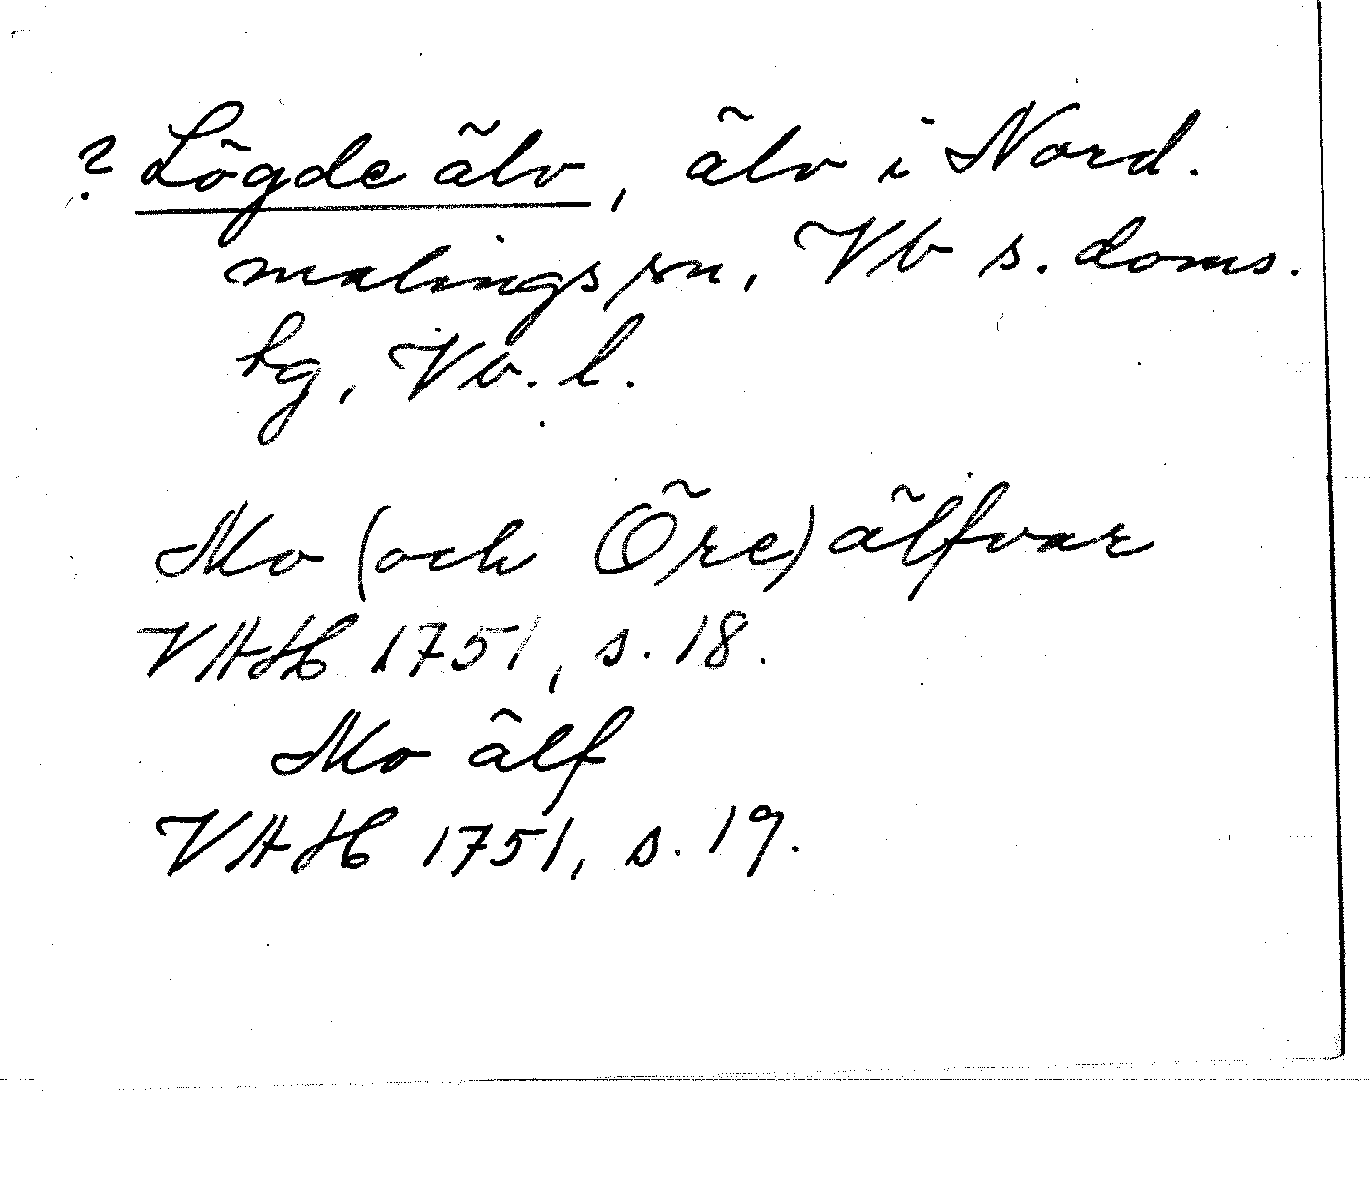 ? Lögde älv, älv i Nord.
malings sn, Vb s. doms.
hg, Vb. l.
Mo (och Öre) älfvar
VAH 1751, s. 18.
Mo älf
VAH 1751, s. 19.